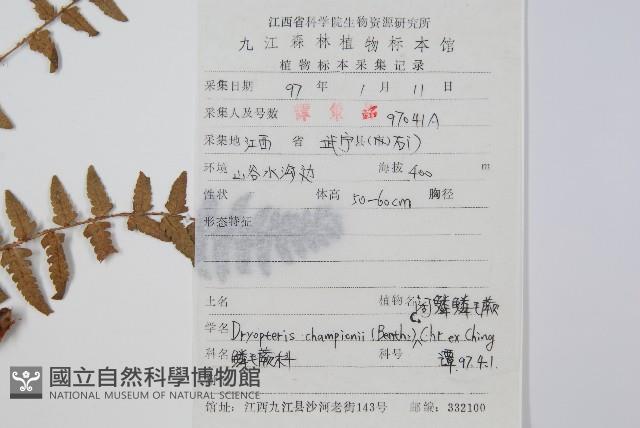 江西省科学院生物资源研究所
九江森林植物标本馆
植物标本采集记录
采集日期 97 年 1 月 11 日
采集人及号数 譚策銘 97041A
采集地 江西 省 武宁县(市)石门
环境 山谷水沟边 海拔 400 m
性状 体高 50-60cm 胸径
形态特征
土名 植物名 阔鳞鳞毛蕨
学名 Dryopteris championii (Benth.) C. Chr ex Ching
科名 鳞毛蕨科 科号 潭.97.4.1.
馆址：江西九江县沙河老街143号 邮编：332100
國立自然科學博物館
NATIONAL MUSEUM OF NATURAL SCIENCE